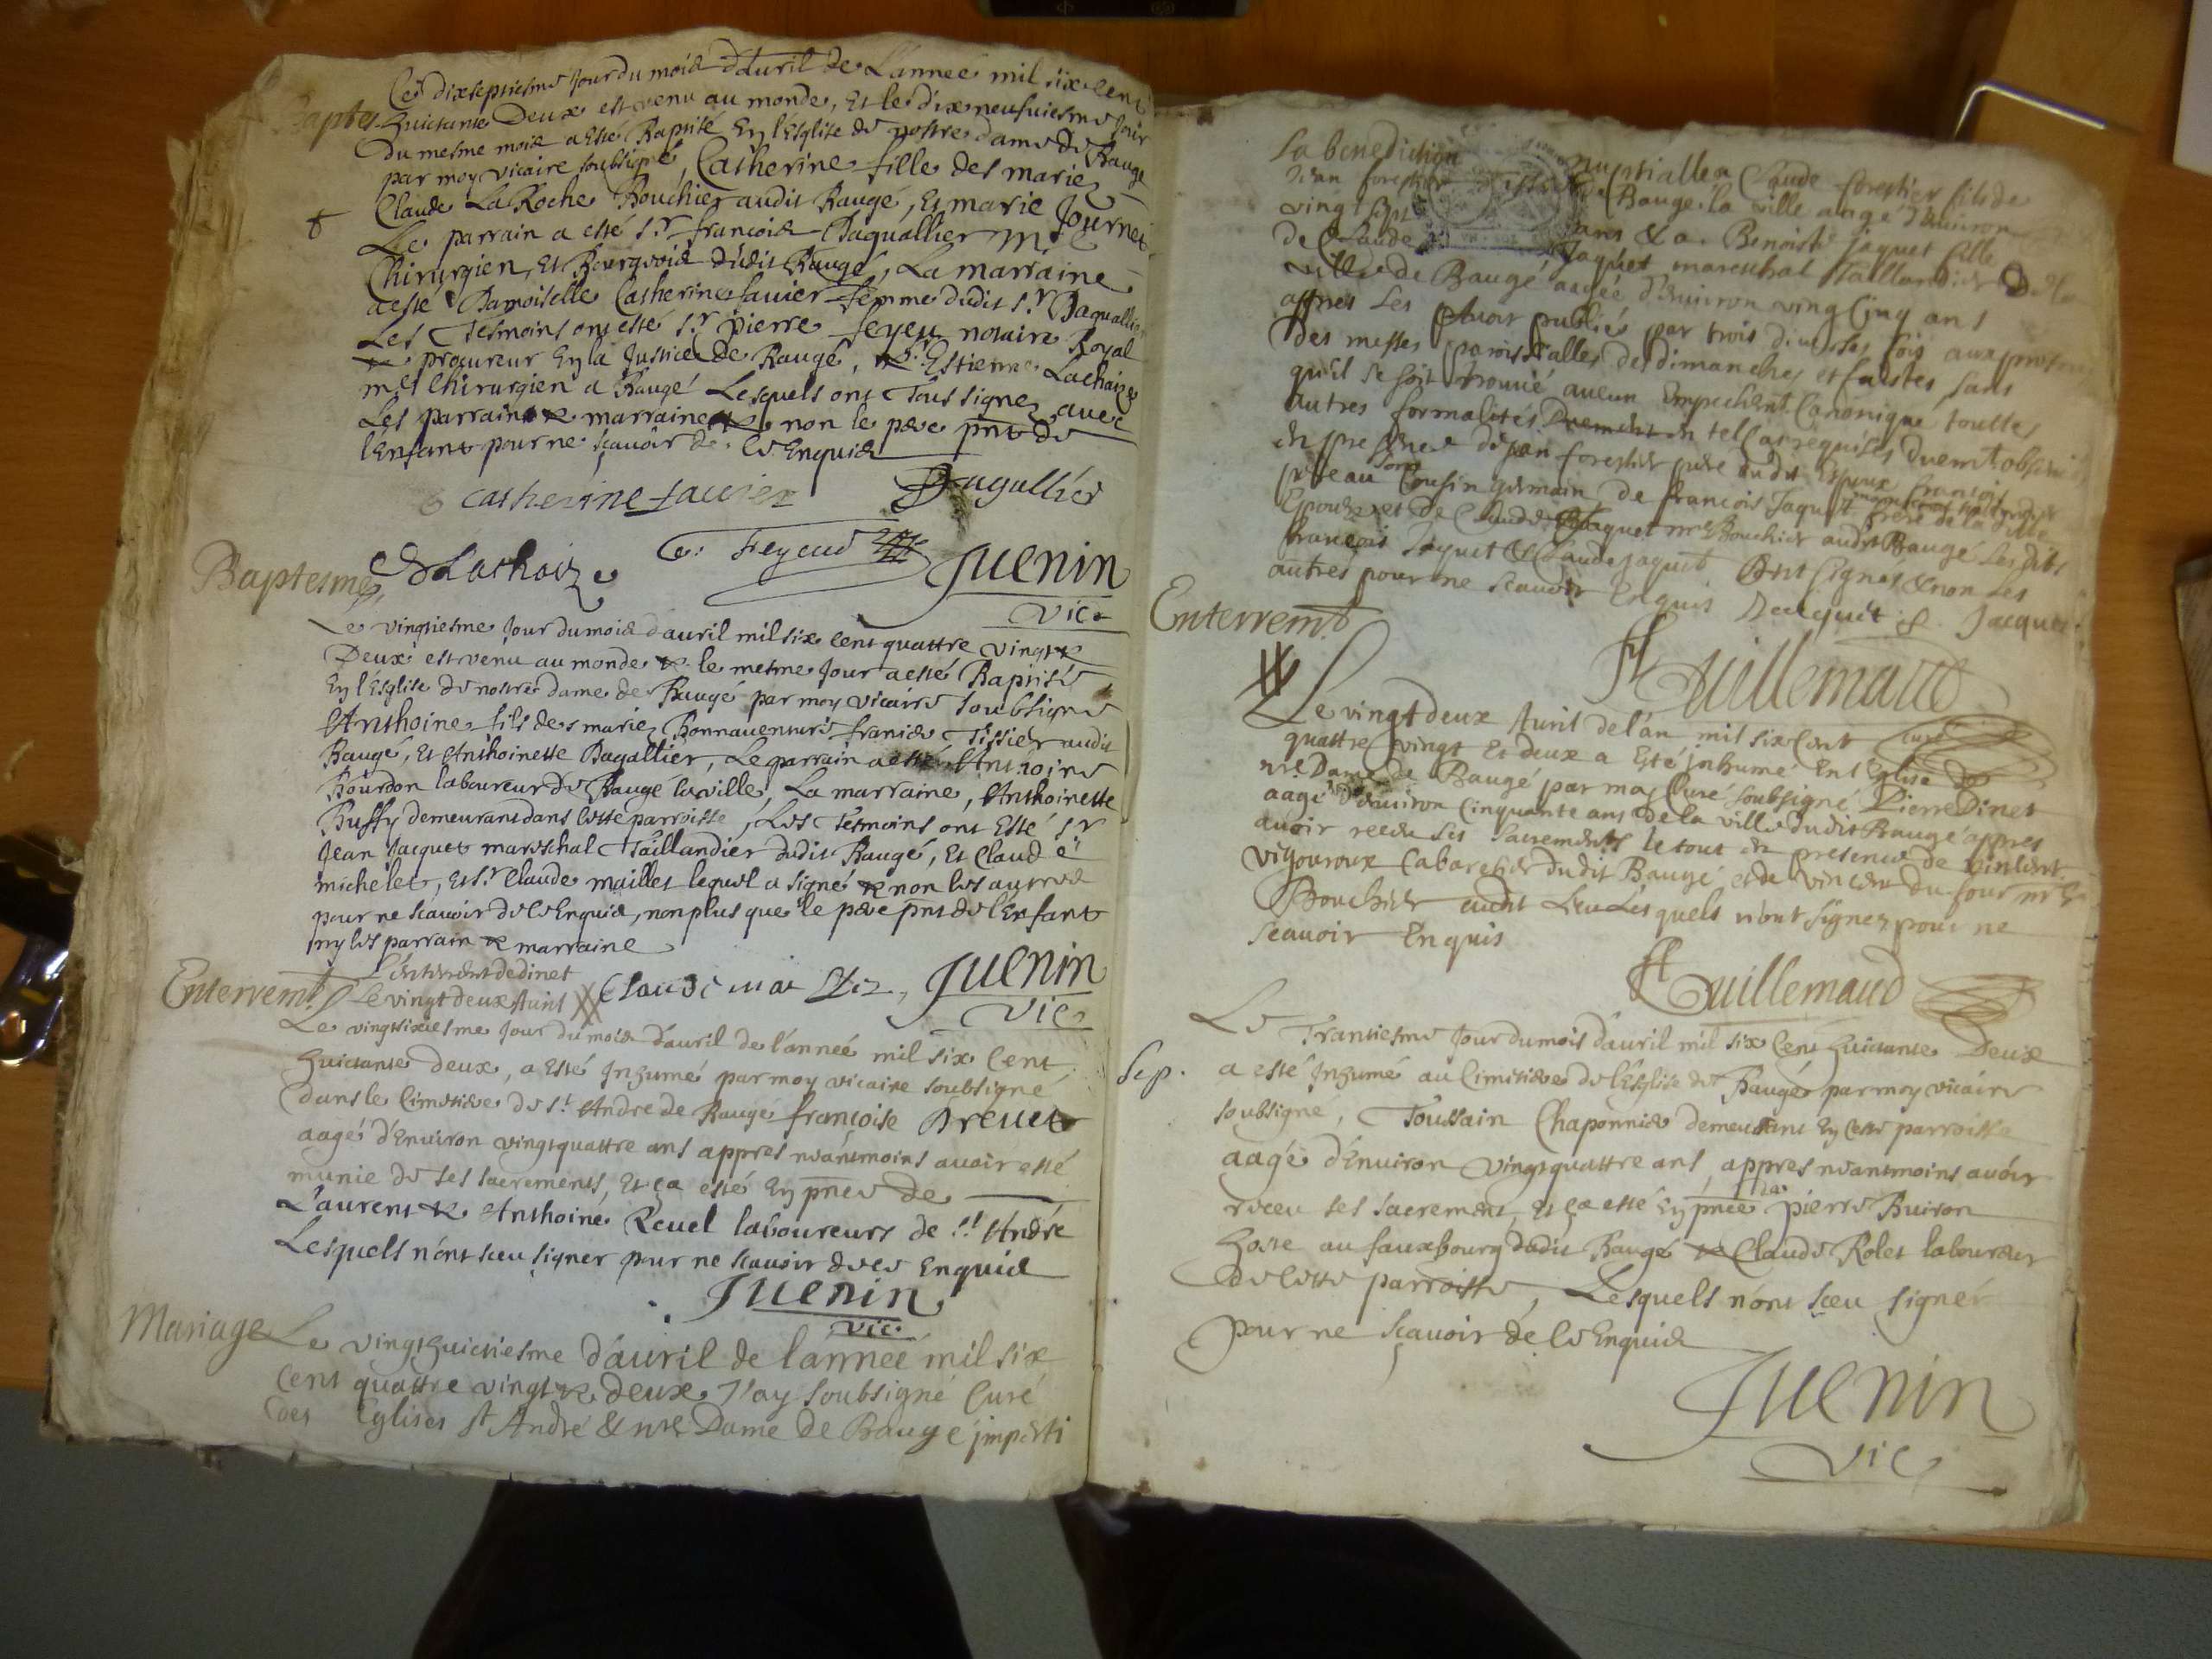 Le dixseptiesme Jour du mois d'Auril de L'année mil six cent
Baptes. huictante Deux est venu au monde, Et le dix neufuiesme Jour
Du mesme mois a Esté Baptisé En l'Esglise de nostre dame de Baugé
par moy vicaire soubsigné, Catherine fille des mariez
Claude La Roche Bouchier audit Baugé, Et marie Journet
Le parrain a esté Sr. francois Daguallier Mre
Chirurgien, Et Bourgeois dudit Baugé, La marraine
a esté Damoiselle Catherine fauier femme dudit Sr. Daguallier
Les Tesmoins ont esté Sr. pierre feyeu notaire Royal
& procureur En la Justice de Baugé, & Sr. Estienne Lachaize
mre Chirurgien a Baugé Lesquels ont Tous signez auec
Les parrain & marraine & non le pere pnt de
l'Enfant pour ne sçauoir de ce Enquis
catherine fauier Dagallier
E Lachaize feyeud Juenin
vic.
Baptesme
Le vingtiesme Jour du mois d'auril mil six cent quattre vingt &
Deux est venu au monde & le mesme Jour a esté Baptisé
En l'Esglise de nostre dame de Baugé par moy vicaire soubsigné
Anthoine fils des mariez Bonnauenture franio Tissier audit
Baugé, Et Anthoinette Dagallier, Le parrain a esté Anthoine
Bourdon laboureur de Baugé la ville, La marraine, Anthoinette
Buffy demeurant dans cette parroisse, Les Tesmoins ont Esté Sr
Jean Jacquet mareschal Taillandier dudit Baugé, Et Claude
michelet, Et Sr. Claude maillet lequel a signé & non les autres
pour ne sçauoir de ce Enquis, non plus que le pere pnt de l'Enfant
ny les parrain & marraine
L'enterremt de dinet
Le vingt deux Auril Claude mailliez, Juenin
vic.
Enterremt.
Le vingtsixiesme Jour du mois d'auril de l'année mil six Cent
huictante deux, a Esté Inhumé par moy vicaire soubsigné
dans le Cimetiere de St. André de Baugé françoise Breuet
aagé d'Enuiron vingtquattre ans appres neantmoins auoir esté
munie de ses sacrements, Et ça esté En pnce de
Laurent & Anthoine Reuel laboureurs de St. André
Lesquels n'ont sceu signer pour ne sçauoir de ce Enquis
Juenin
vic.
Mariage Le vingthuictiesme d'auril de l'année mil six
Cent quattre vingt & deux J'ay soubsigné Curé
des Eglises St André & nre Dame de Baugé imparti
La benediction nuptialle a Claude forestier fils de
Jean forestier de Baugé la ville aagé d'Enuiron
vingt sept ans & a Benoiste Jaquet fille
de Claude Jaquet mareschal Taillandier de la
ville de Baugé aagée d'Enuiron vingt Cinq ans
appres Les auoir publié par trois diuerses fois aux prosnes
des messes paroissialles des dimanches et faistes sans
qu'il se soit trouué aucun Empechemt. Canonique touttes
autres formalités en tel cas requises duemt obseruées
en presence de Jean forestier pere dudit Espoux francois
son Cousin germain de francois Jaquet frere de la ditte
Epouse et de Claude Jaquet mre Bouchier audit Baugé Les dits
francois Jaquet & Claude Jaquet Ont signés & non Les
autres pour ne scauoir Enquis Jacquet
Guillemaud
curé
Enterremt.
Le vingt deux Auril de l'an mil six Cent
quattre vingt et deux a Esté inhumé En l'Eglise de
nre Dame de Baugé par moy Curé soubsigné Pierre Dinet
aagé d'Enuiron Cinquante ans de la ville dudit Baugé appres
auoir receu ses sacrements le tout en presence de Vincent
Vigouroux Cabaretier dudit Baugé et de Vincent du four mre
Bouchier audit Lieu Lesquels n'ont signez pour ne
scauoir Enquis
Guillemaud
Le Trantiesme Jour du mois d'auril mil six Cent huictante Deux
Sep. a esté Inhumé au Cimitiere de l'Esglise de Baugé par moy vicaire
soubsigné, Toussain Chaponnier demeurant En cette parroisse
aagé d'Enuiron vingtquattre ans, appres neantmoins auoir
receu ses sacrement, Et ça esté En pnce de pierre Buiron
hoste au fauxbourg dudit Baugé & Claude Rolet laboureur
de cette parroisse, Lesquels n'ont sceu signer
pour ne sçauoir de ce Enquis
Juenin
vic.